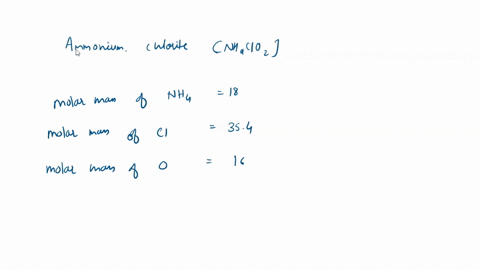 Ammonium chlorite [NH4ClO2]
molar mass of NH4 = 18
molar mass of Cl = 35.4
molar mass of O = 16